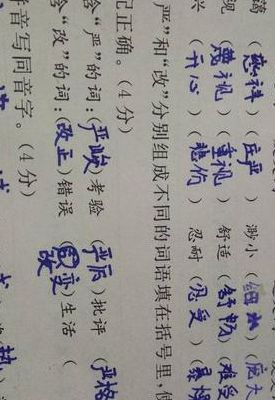 (庄严) 渺小(细小)(庞大
现(蔑视)(重视) 舒适(舒畅)(难受
兴(开心)(悲伤) 忍耐(忍受)(暴躁
严”和“改”分别组成不同的词语填在括号里,使
正确。(4分)
含“严”的词:(严峻)考验 (严厉)批评 (严格
含“改”的词:(改正)错误 (改变)生活 (
音写同音字。(4分)